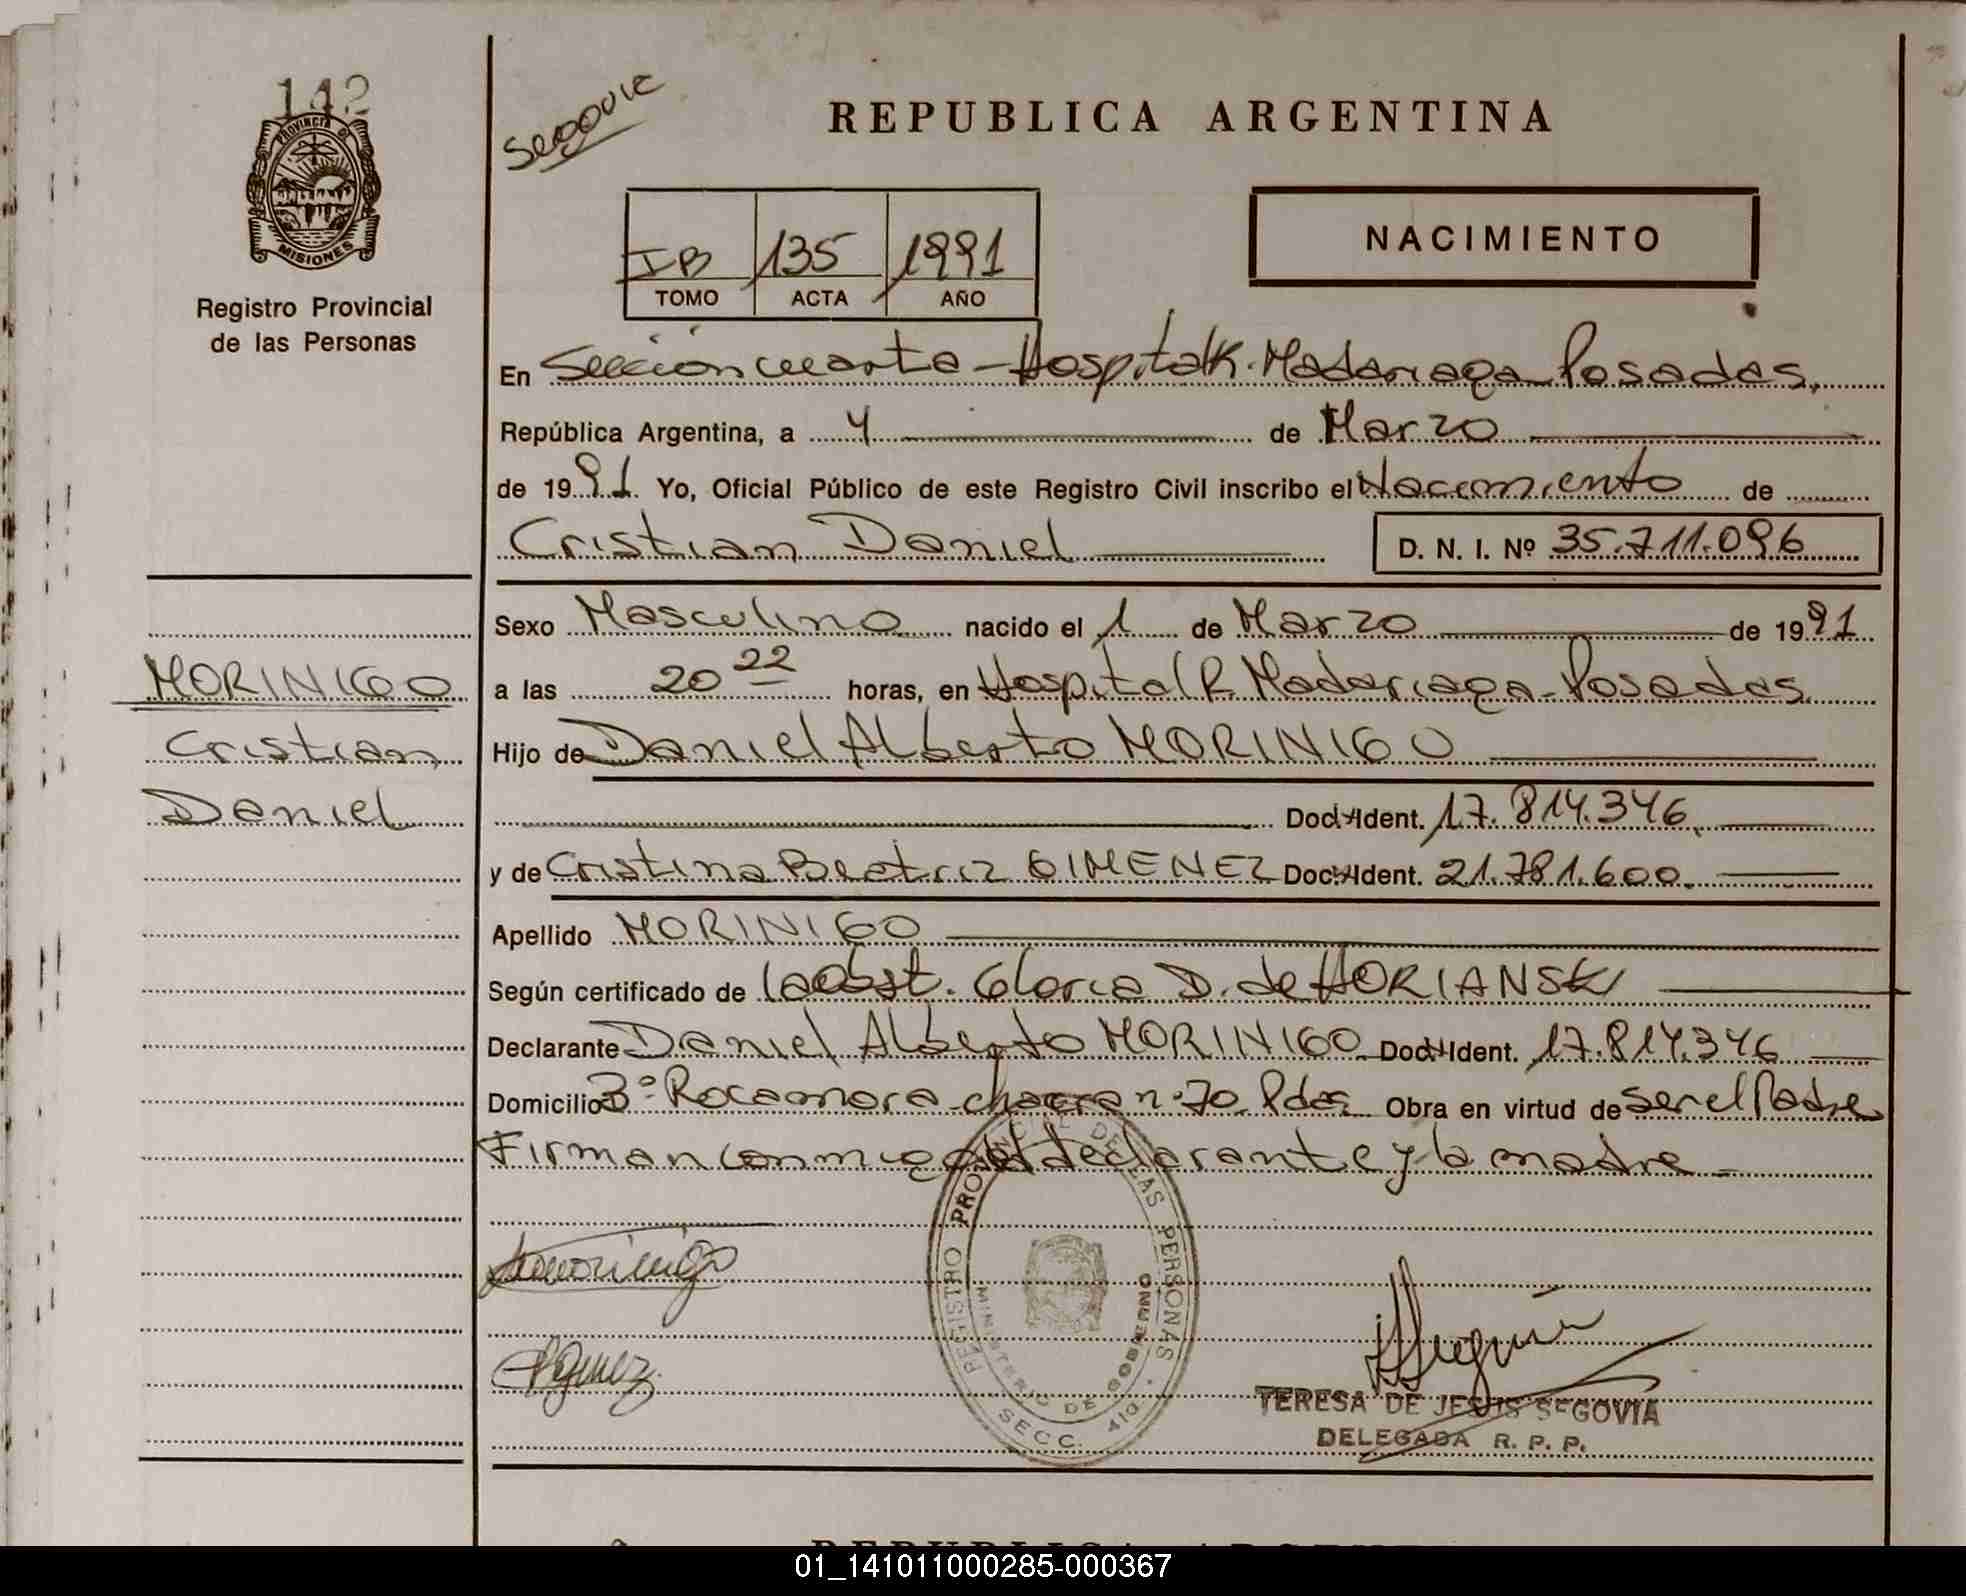 142
PROVINCIA D
MISIONES
Registro Provincial
de las Personas
MORINIGO
Cristian
Daniel
Segovia
REPUBLICA ARGENTINA
IB 135 1991
TOMO ACTA AÑO
NACIMIENTO
En Sección cuarta - Hospital R. Madariaga Posadas,
República Argentina, a 4 de Marzo
de 1991. Yo, Oficial Público de este Registro Civil inscribo el Nacimiento de
Cristian Daniel D. N. I. Nº 35.711.096
Sexo Masculino nacido el 1 de Marzo de 1991
a las 20 22 horas, en Hospital R Madariaga - Posadas.
Hijo de Daniel Alberto MORINIGO
Doc. Ident. 17.814.346.
y de Cristina Beatriz GIMENEZ Doc. Ident. 21.781.600.
Apellido MORINIGO
Según certificado de la obst. Gloria D. de HORIANSKI
Declarante Daniel Alberto MORINIGO Doc. Ident. 17.814.346
Domicilio Bº Rocamora chacra nº 70 Pdas. Obra en virtud de ser el Padre
Firman conmigo el declarante y la madre -
REGISTRO PROVINCIAL DE LAS PERSONAS
MINISTERIO DE GOBIERNO
SECC. 4ta.
TERESA DE JESUS SEGOVIA
DELEGADA R. P. P.
REPUBLICA ARGENTINA
01_141011000285-000367